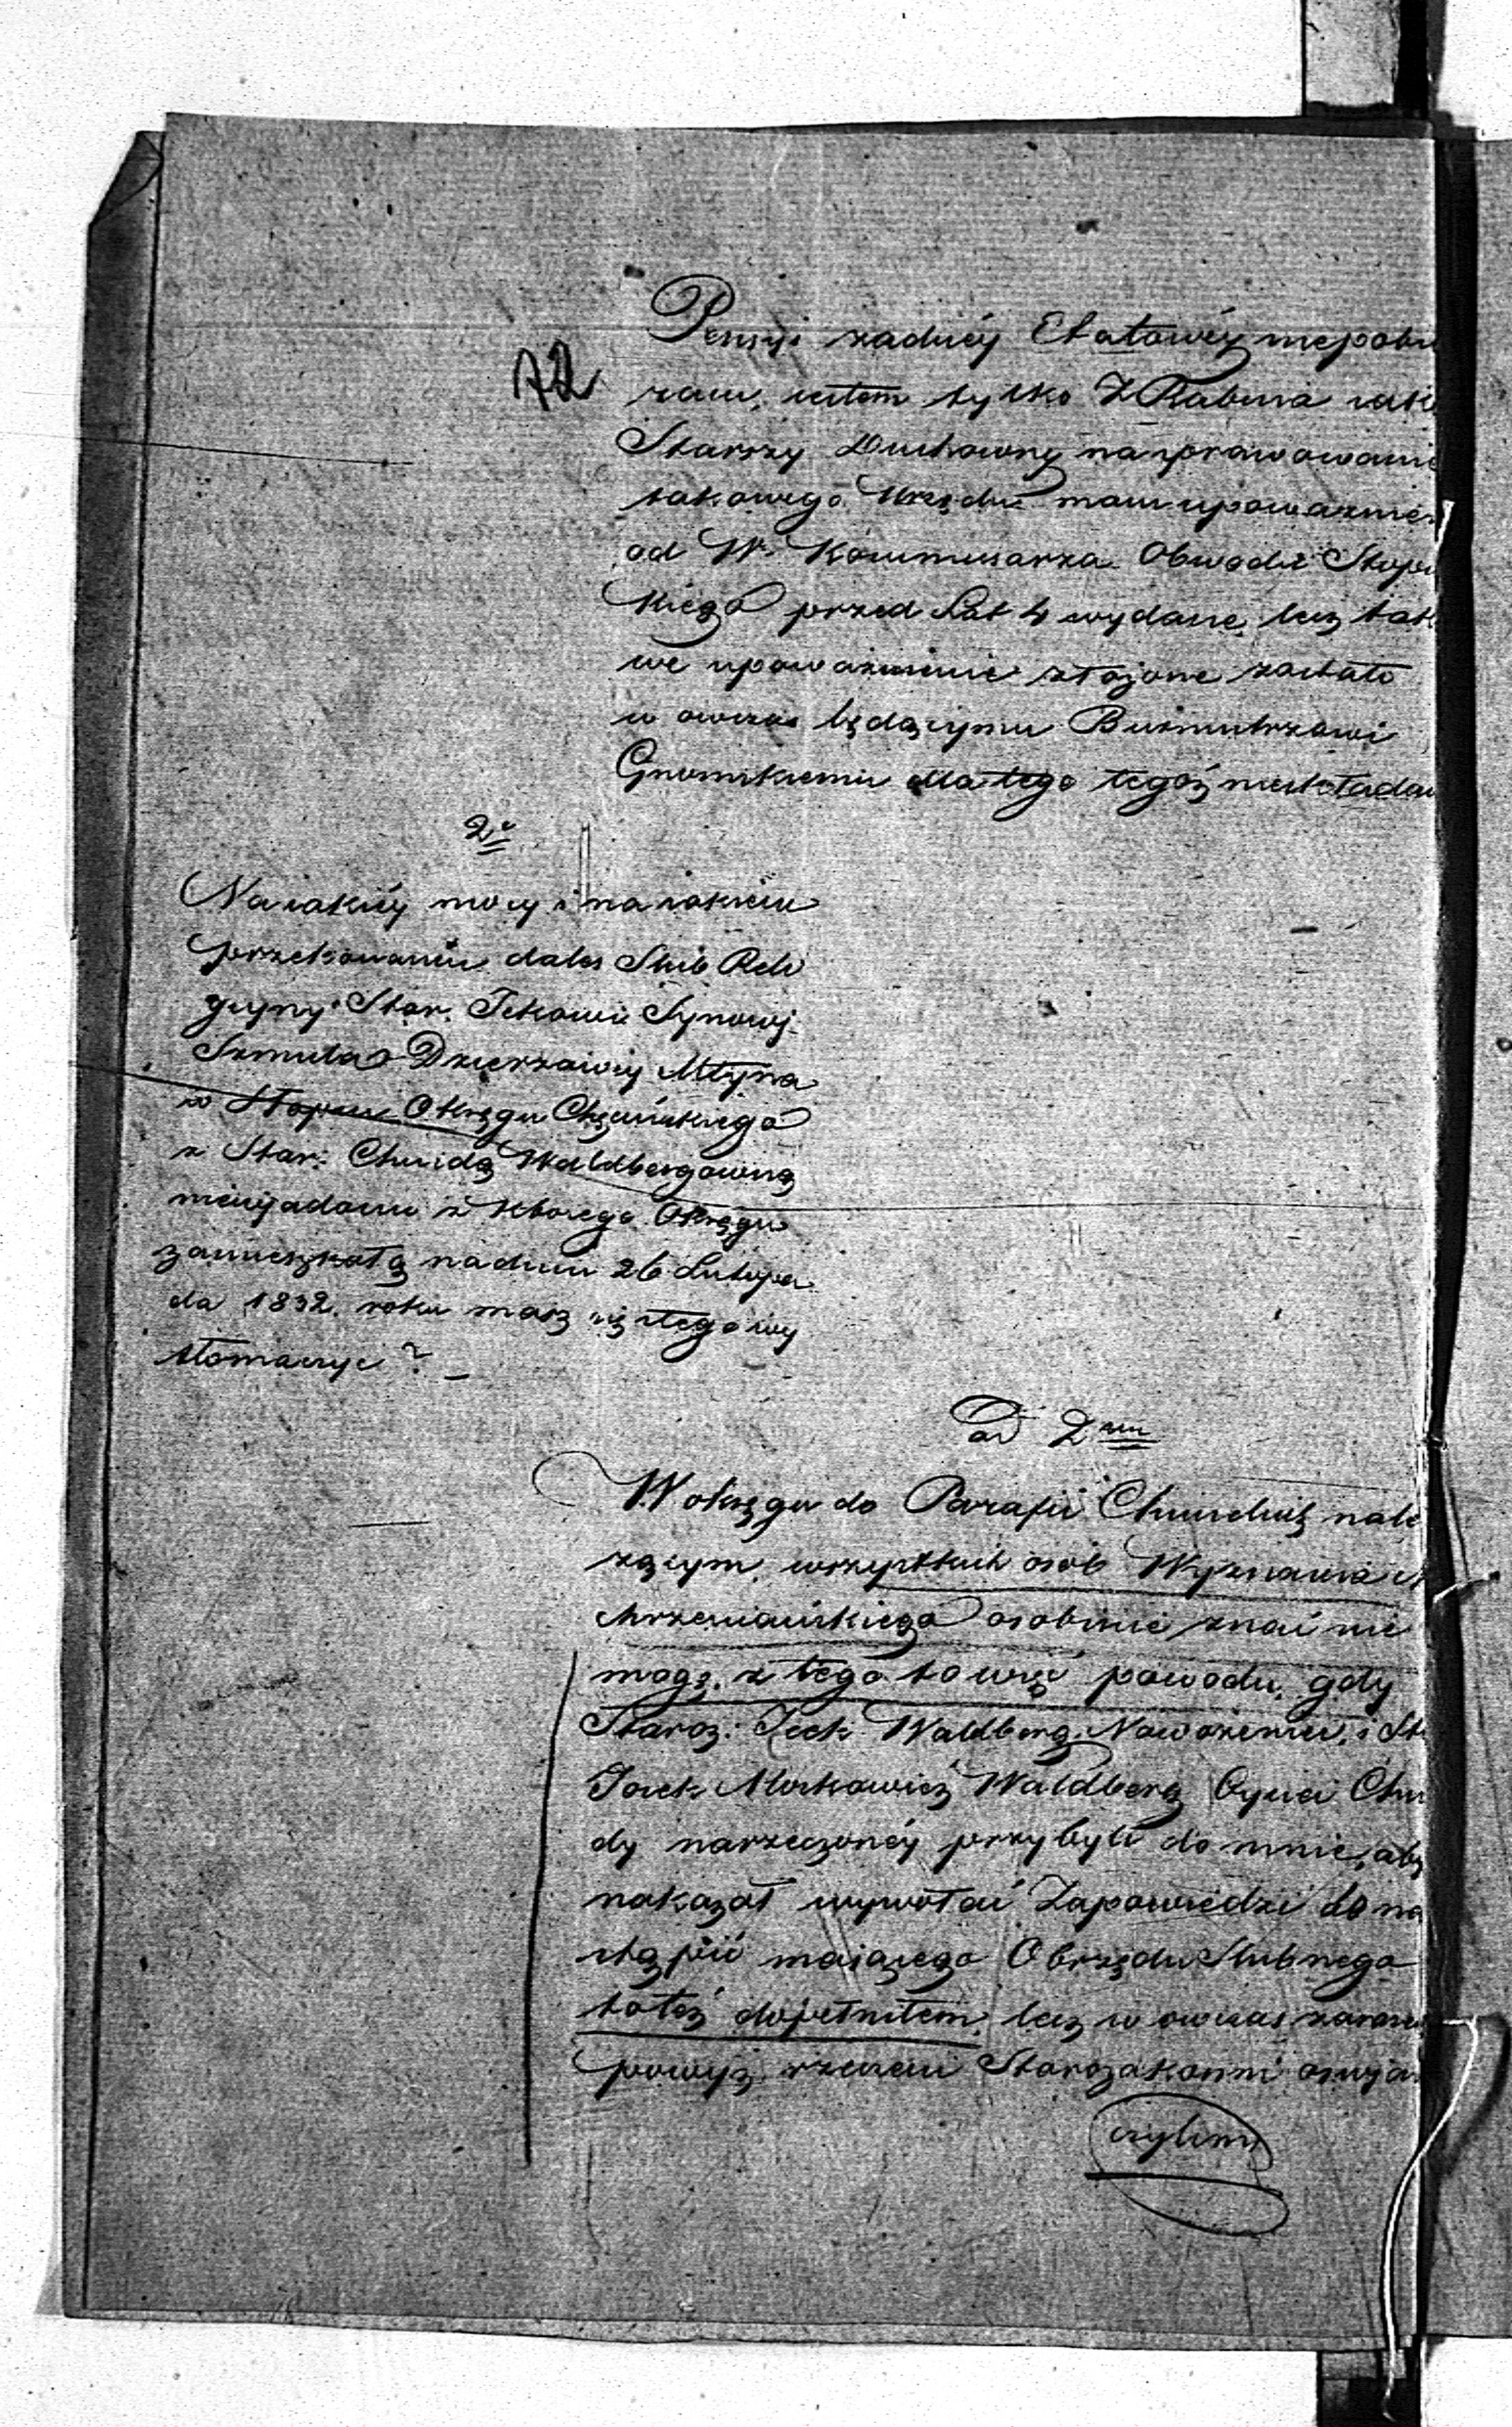 72
Pensyi żadnéy Etatowéy niepobie
ram, iestem tylko Z Rabina iako
Starszy Duchowny na sprawowanie
takowego Urzędu mam upoważnien
od W. Kommissarza Obwodu Stopn
kiego przed Lat 4 wydane, lecz tak
we upoważnienie złożone zostało
w owczas będącymu Burmistrzowi
dla tego tegoż nieskładam
2e
Na iakiéy mocy i na iakiem
przekonaniu dałeś Ślub Reli
giyny Star. Ickowi Synowi
Szmula Dzierżawcy Młyna
w Stopcu Okręgu Chęcińskiego
z Star: Chaidą Waldbergowną
niewjadomo z ktorego Okręgu
zamieszkałą na dniu 26 Listopa
da 1832. roku masz się z tego wy
tłomaczyć? _
Ad 2um
W okręgu do Parafii Chmielnik nale
żącym, wszystkich osob Wyznania
chrzesciańskiego osobiscie znać nie
mogę. z tego to więc powodu, gdy
Staroz: Icek Waldberg Nowożeniec, i St
Josek Moskowicz Waldberg Oyciec Cha
dy narzeczonéy przybyli do mnie, aby
nakazał wywołać Zapowiedzi do na
stąpić maiącego Obrzędu Slubnego
toteż dopełniłem, lecz w owczas zaraz
powyż rzeczeni Starozakonni oswjad
czylimi